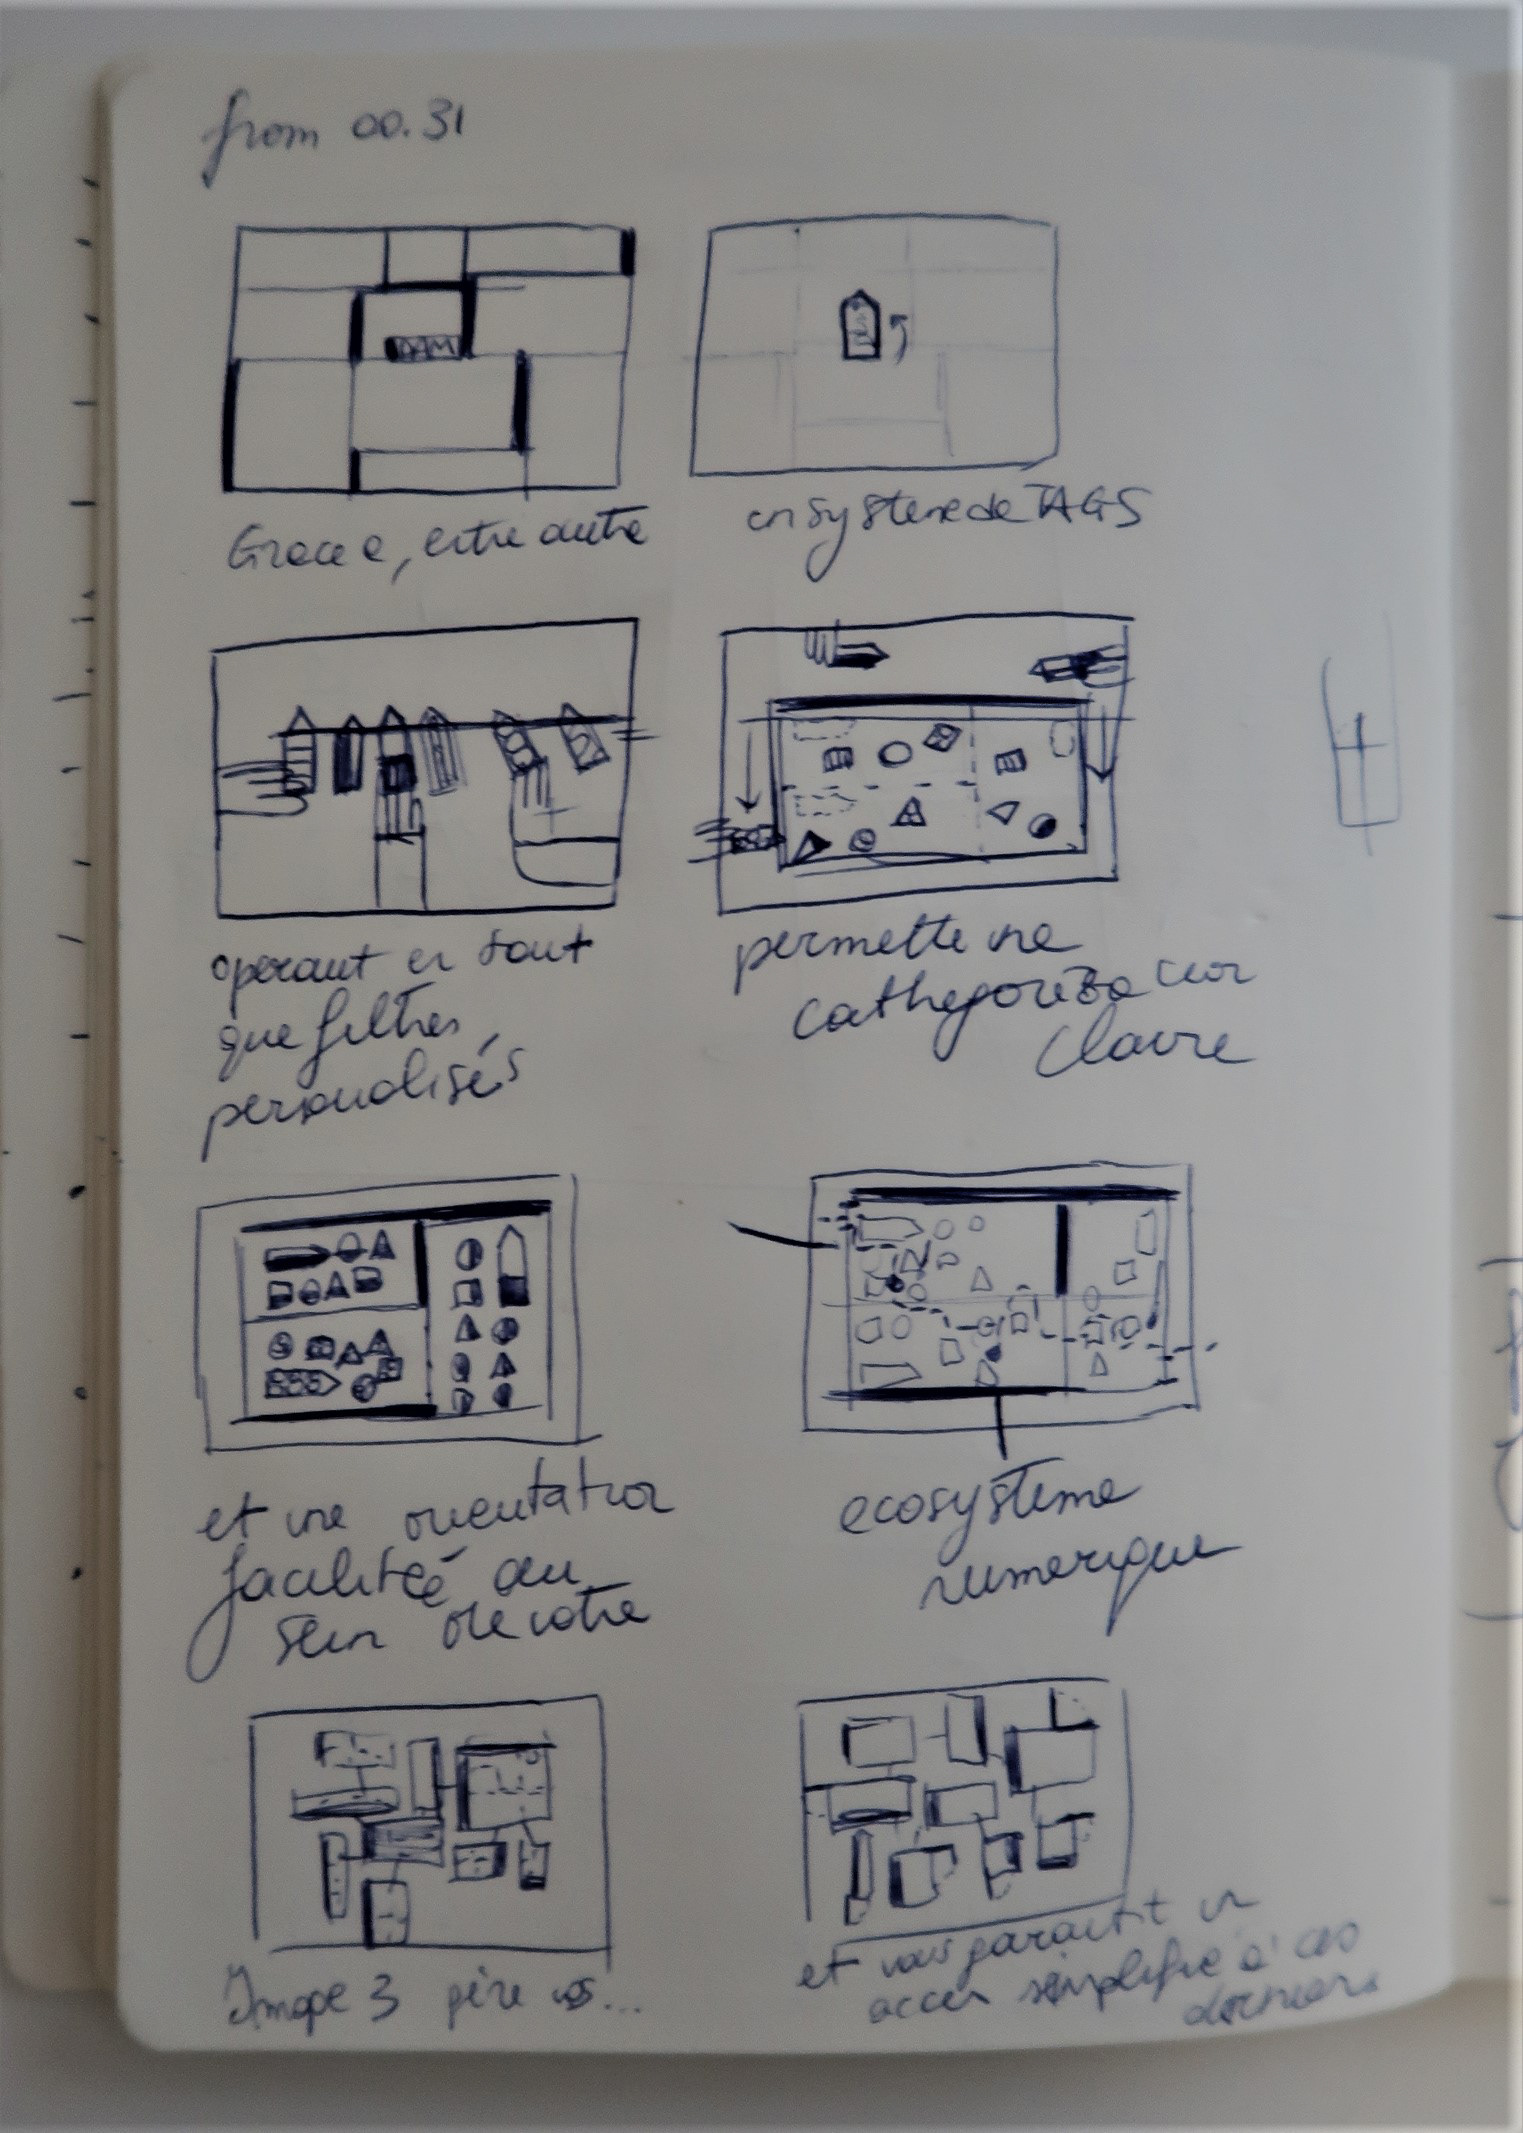 from 00.31
DAM
Grace a, entre autre
un systeme de TAGS
operant en tant
que filtres
personalisés
permette une
cathegorisacion
claire
et une orientation
facilitée au
sein de votre
ecosysteme
numerique
Image 3 gère vos...
et vous garantit un
acces simplifié à ces
derniers